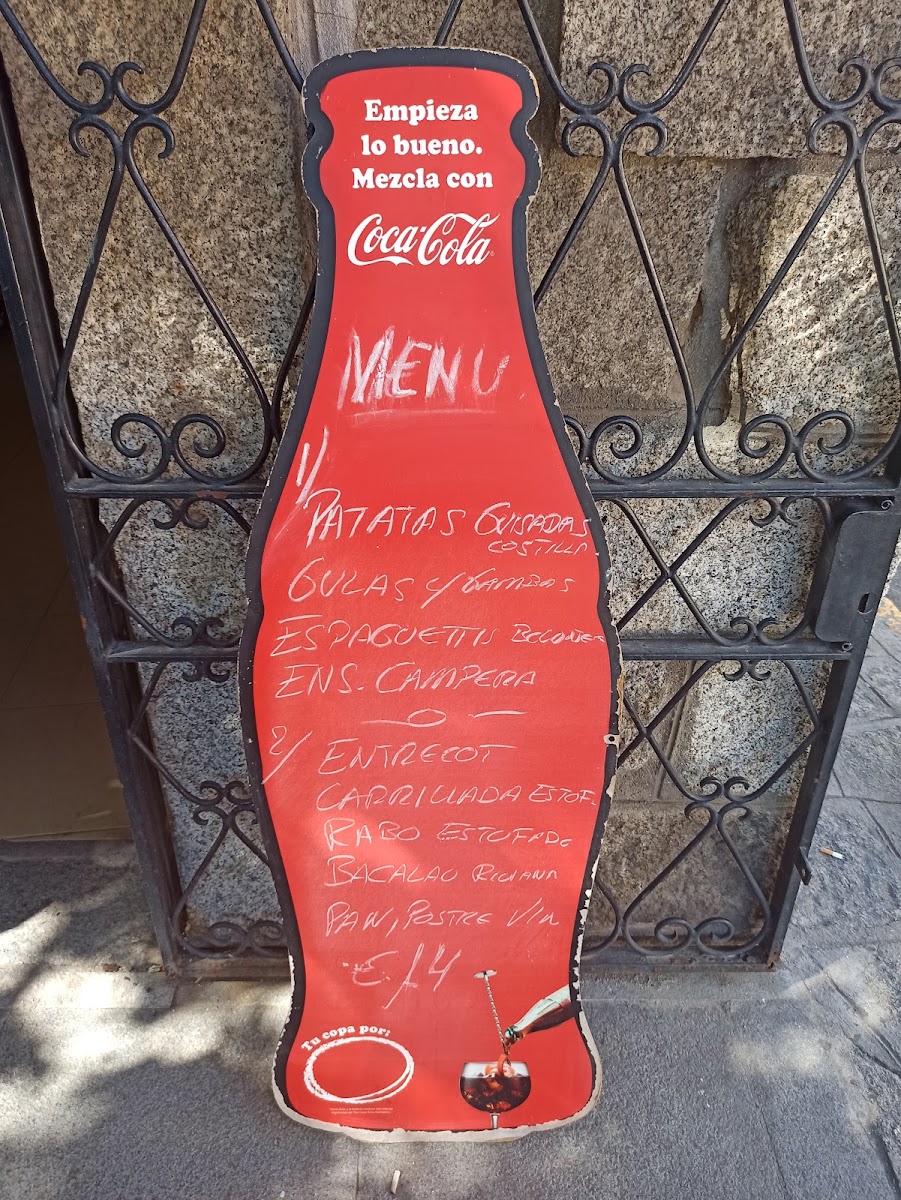 Empieza
lo bueno.
Mezcla con
Coca-Cola
MENU
1/
PATATAS GUISADAS
COSTILLA
GULAS Y GAMBAS
ESPAGUETTIS
ENS. CAMPERA
2/
ENTRECOT
CARRILLADA ESTOF.
RABO ESTOFADO
BACALAO RIOJANA
PAN, POSTRE VIN
€. 14
Tu copa por: